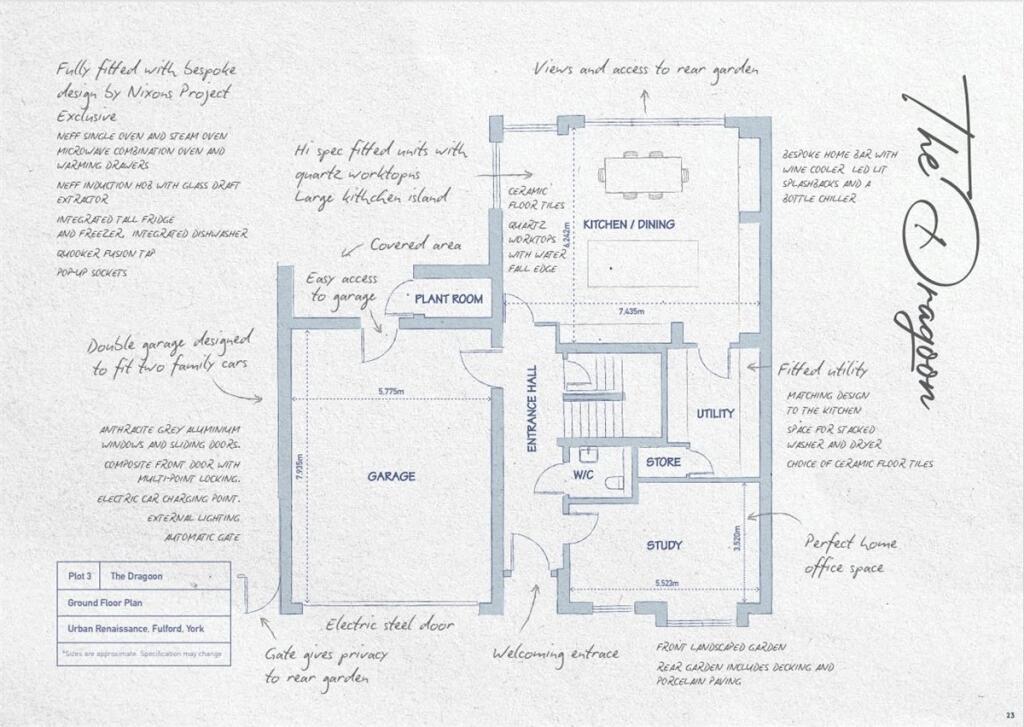 Fully fitted with bespoke
design by Nixons Project
Exclusive
NEFF SINGLE OVEN AND STEAM OVEN
MICROWAVE COMBINATION OVEN AND
WARMING DRAWERS
NEFF INDUCTION HOB WITH GLASS DRAFT
EXTRACTOR
INTEGRATED TALL FRIDGE
AND FREEZER, INTEGRATED DISHWASHER
QUOOKER FUSION TAP
POP-UP SOCKETS
Views and access to rear garden
Hi spec fitted units with
quartz worktopns
Large kithchen island
CERAMIC
FLOOR TILES
QUARTZ
WORKTOPS
WITH WATER
FALL EDGE
KITCHEN / DINING
6.242m
7.435m
BESPOKE HOME BAR WITH
WINE COOLER LED LIT
SPLASHBACKS AND A
BOTTLE CHILLER
The Dragoon
Covered area
Easy access
to garage
PLANT ROOM
Double garage designed
to fit two family cars
5.775m
7.935m
GARAGE
ENTRANCE HALL
UTILITY
STORE
W/C
Fitted utility
MATCHING DESIGN
TO THE KITCHEN
SPACE FOR STACKED
WASHER AND DRYER
CHOICE OF CERAMIC FLOOR TILES
ANTHRACITE GREY ALUMINIUM
WINDOWS AND SLIDING DOORS.
COMPOSITE FRONT DOOR WITH
MULTI-POINT LOCKING.
ELECTRIC CAR CHARGING POINT.
EXTERNAL LIGHTING
AUTOMATIC GATE
STUDY
3.520m
5.523m
Perfect home
office space
Plot 3 The Dragoon
Ground Floor Plan
Urban Renaissance, Fulford, York
*Sizes are approximate. Specification may change
Electric steel door
Gate gives privacy
to rear garden
Welcoming entrace
FRONT LANDSCAPED GARDEN
REAR GARDEN INCLUDES DECKING AND
PORCELAIN PAVING
23